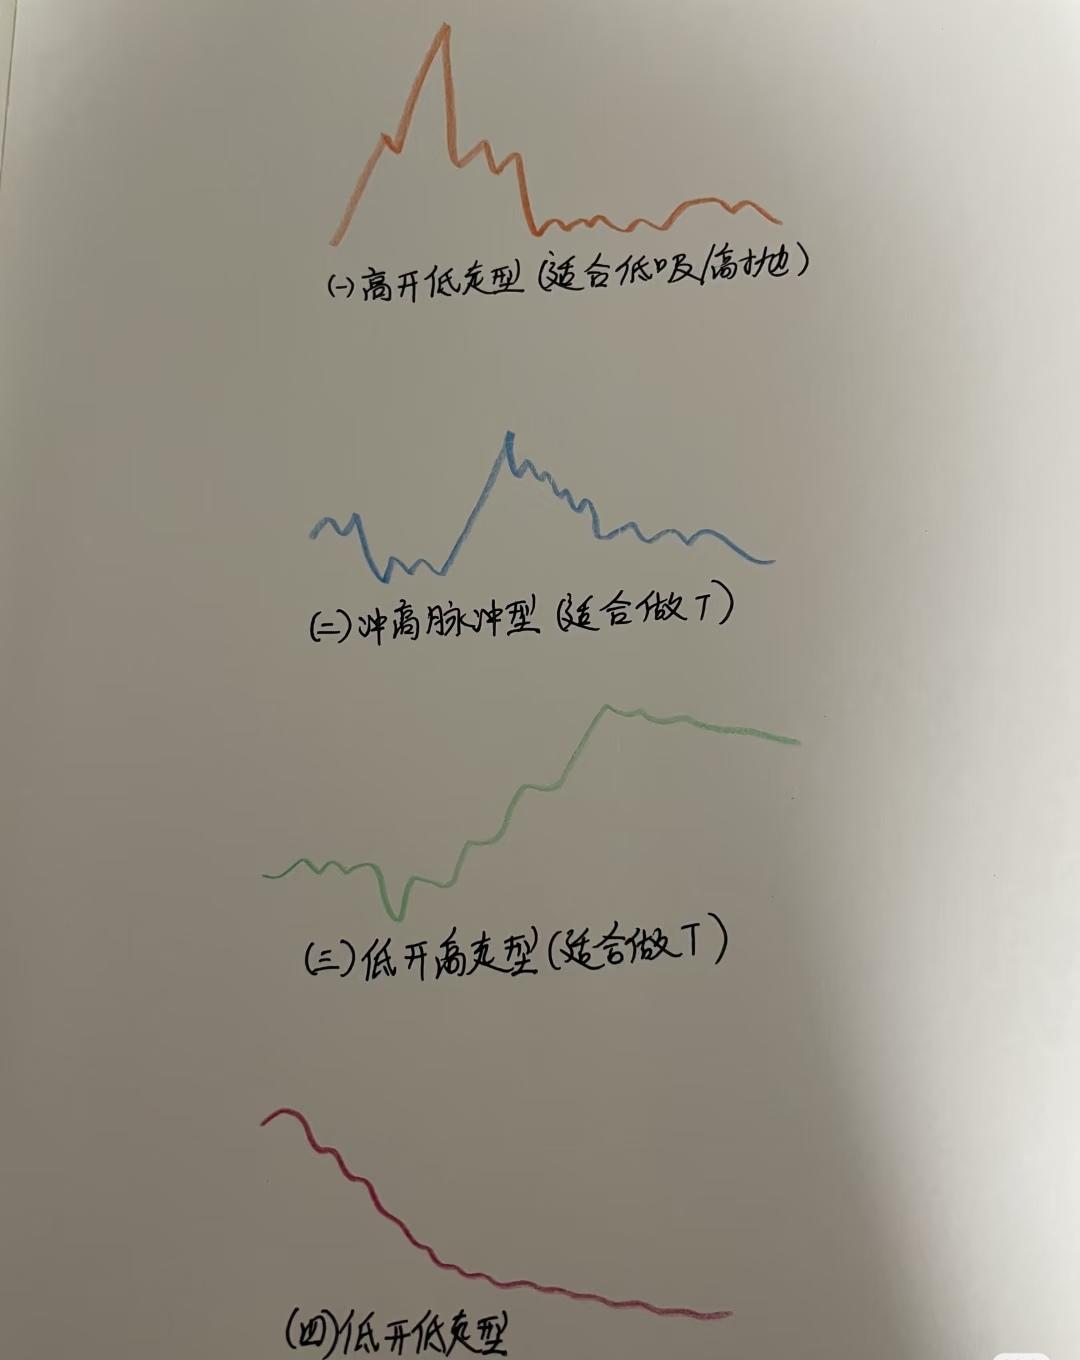 (一)高开低走型(适合低吸/高抛)
(二)冲高脉冲型(适合做T)
(三)低开高走型(适合做T)
(四)低开低走型